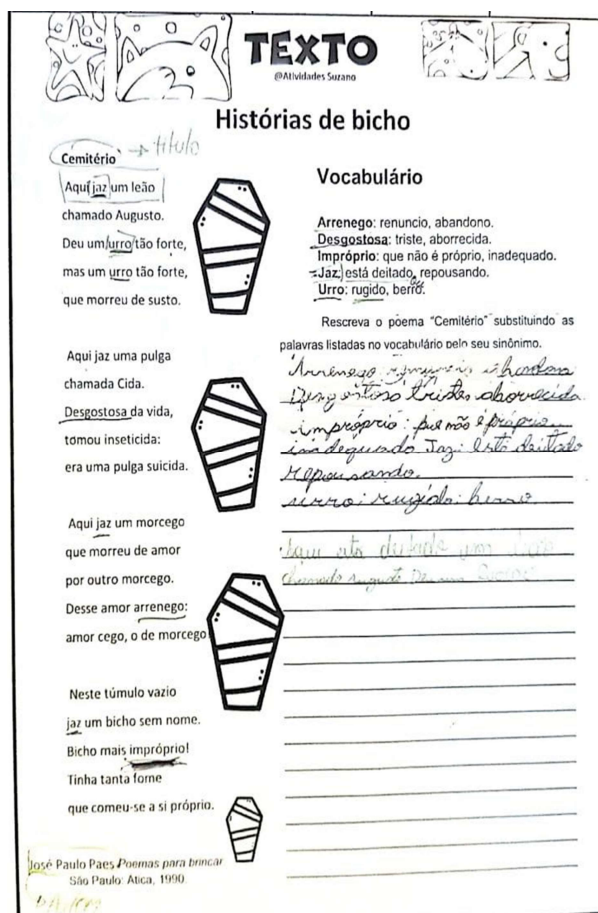 TEXTO
@Atividades Suzano
Histórias de bicho
Cemitério → título
Aqui jaz um leão
chamado Augusto.
Deu um urro tão forte,
mas um urro tão forte,
que morreu de susto.
Aqui jaz uma pulga
chamada Cida.
Desgostosa da vida,
tomou inseticida:
era uma pulga suicida.
Aqui jaz um morcego
que morreu de amor
por outro morcego.
Desse amor arrenego:
amor cego, o de morcego
Neste túmulo vazio
jaz um bicho sem nome.
Bicho mais impróprio!
Tinha tanta fome
que comeu-se a si próprio.
José Paulo Paes Poemas para brincar
São Paulo: Ática, 1990.
Vocabulário
Arrenego: renuncio, abandono.
Desgostosa: triste, aborrecida.
Impróprio: que não é próprio, inadequado.
Jaz: está deitado, repousando.
Urro: rugido, berro.
Rescreva o poema “Cemitério” substituindo as
palavras listadas no vocabulário pelo seu sinônimo.
Arrenego
Desgostoso tristes aborrecida
impróprio: que não é próprio
inadequado Jaz: está deitado
repousando.
urro: rugido: berro
Aqui deitado um
chamado